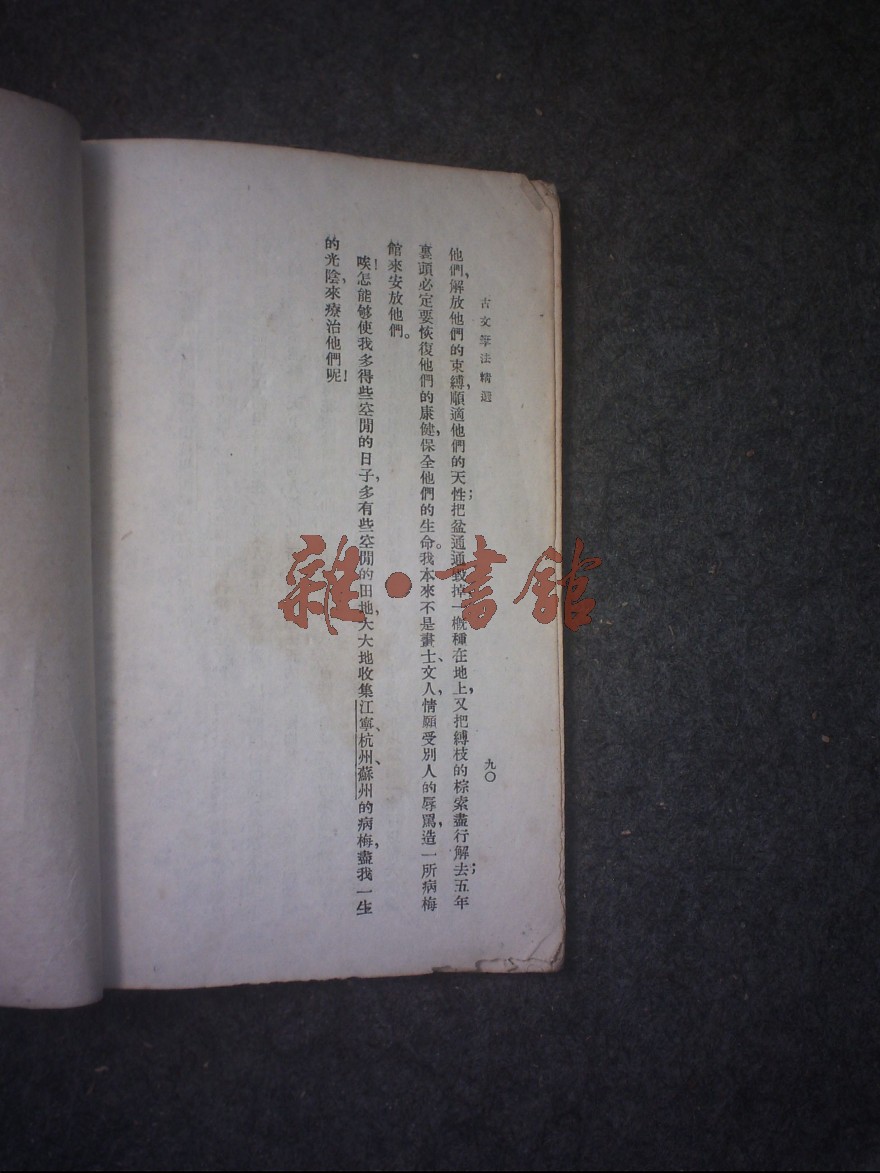 古文筆法精選
九〇
他們，解放他們的束縛，順適他們的天性；把盆通通毀掉一概種在地上，又把縛枝的棕索盡行解去；五年
裏頭必定要恢復他們的康健，保全他們的生命。我本來不是畫士、文人，情願受別人的辱罵，造一所病梅
館來安放他們。
唉！怎能够使我多得些空閒的日子，多有些空閒的田地，大大地收集江寧、杭州、蘇州的病梅，盡我一生
的光陰，來療治他們呢！
雜·書館